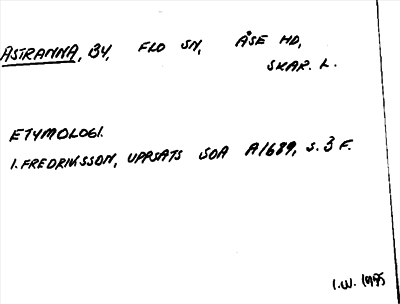 ASTRANNA, BY, FLO SN, ÅSE HD,
SKAR. L.
ETYMOLOGI.
I. FREDRIKSSON, UPPSATS SOA A1689, S. 3 F.
I.W. 1995